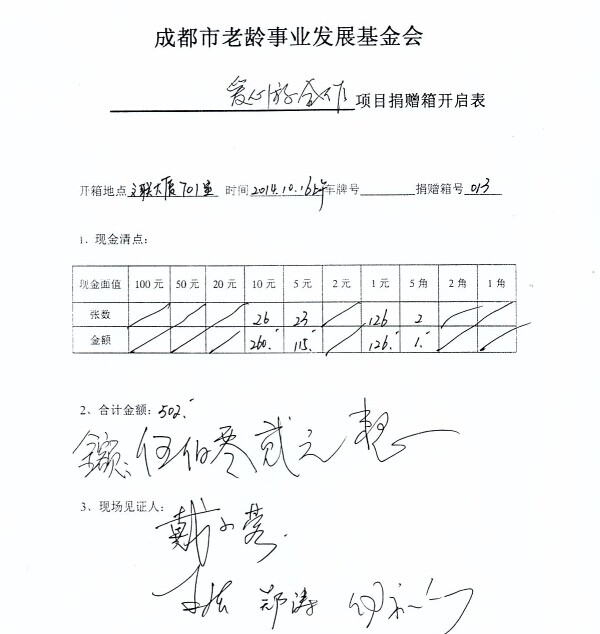 成都市老龄事业发展基金会
爱心 合作 项目捐赠箱开启表
开箱地点 文联大厦701室 时间 2014.10.16上午 车牌号 捐赠箱号 013
1. 现金清点：
现金面值 100元 50元 20元 10元 5元 2元 1元 5角 2角 1角
张数 26 23 126 2
金额 260. 115. 126. 1.
2、合计金额：502.
金额：伍佰零贰元整
3、现场见证人：
戴小蓉
郑涛